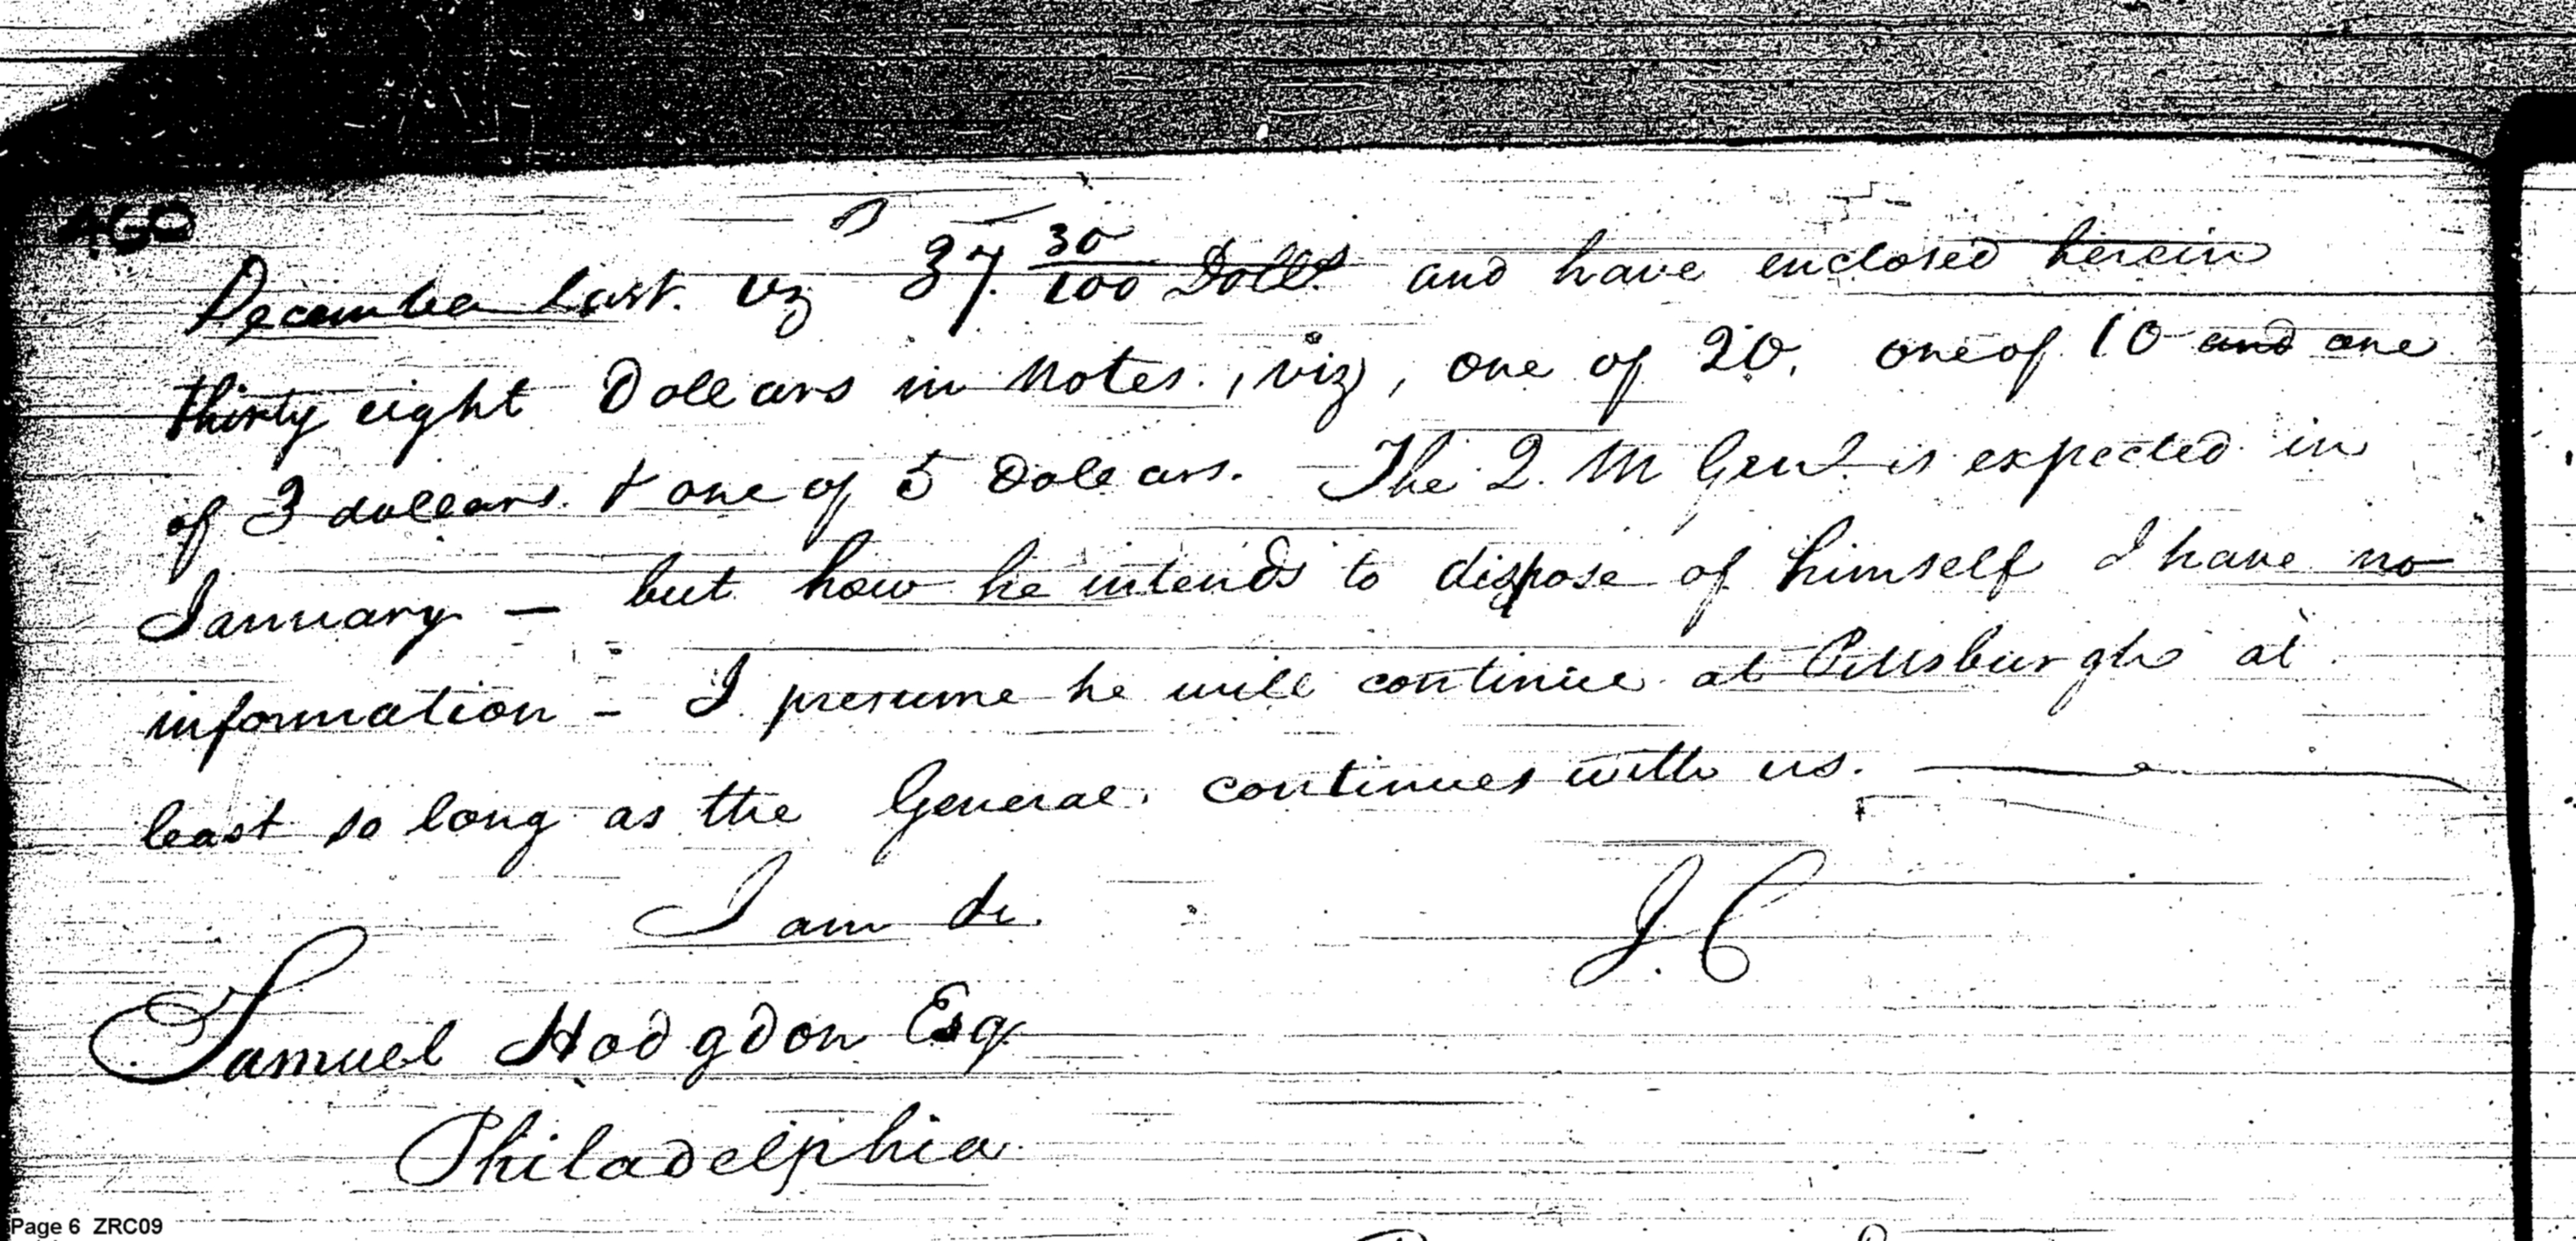 460
December last. vz 37. 30/100 Dolls and have enclosed herein
thirty eight Dollars in Notes., viz, one of 20. one of 10 and one
of 3 dollars. & one of 5 Dollars. The Q. M Genl. is expected in
January — but how he intends to dispose of himself I have no
information – I presume he will continue at Pittsburgh at
least so long as the General. continues with us. —
I am &c.
J. C
Samuel Hodgdon Esq
Philadelphia
Page 6 ZRC09